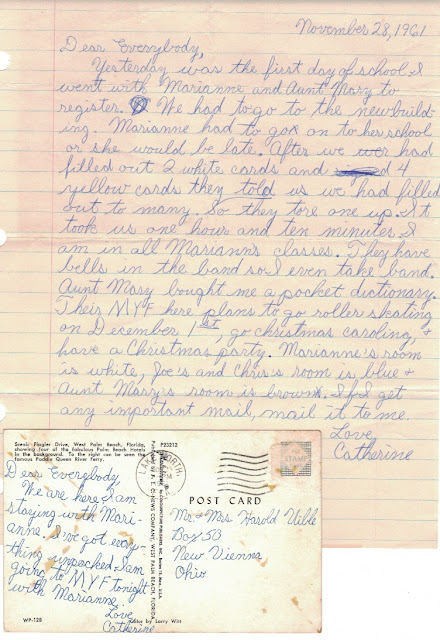 November 28, 1961
Dear Everybody,
Yesterday was the first day of school. I
went with Marianne and Aunt Mary to
register. We had to go to the newbuild-
ing. Marianne had to go on to her school
or she would be late. After we had
filled out 2 white cards and 4
yellow cards they told us we had filled
out to many. So they tore one up. It
took us one hour and ten minutes. I
am in all Mariann's classes. They have
bells in the band so I even take band.
Aunt Mary bought me a pocket dictionary.
Their MYF here plans to go roller skating
on December 1st, go christmas caroling, +
have a Christmas party. Marianne's room
is white, Joe's and Chris's room is blue +
Aunt Mary's room is brown. If I get
any important mail, mail it to me.
Love,
Catherine
Scenic Flagler Drive, West Palm Beach, Florida,
showing four of the fabulous Palm Beach Hotels
in the background. To the right can be seen the
famous Paddle Queen River Ferry.
P23212
Dear Everybody,
We are here. I am
staying with Mari-
anne. I've got every
thing unpacked. I am
going to MYF tonight
with Marianne.
Love,
Catherine
WP-128
Color by Larry Witt
NEWS COMPANY, WEST PALM BEACH, FLORIDA
WORTH
POST CARD
STAMP
Mr. + Mrs. Harold Uible
Box 513
New Vienna
Ohio